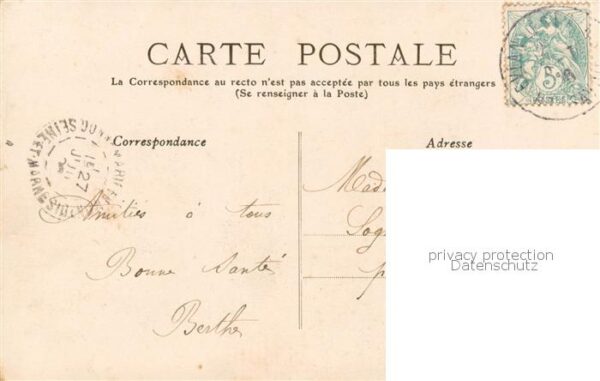 CARTE POSTALE
La Correspondance au recto n'est pas acceptée par tous les pays étrangers
(Se renseigner à la Poste)
Correspondance
Adresse
Amitiés à tous
Bonne Santé
Berthe
Mad
Sog
privacy protection
Datenschutz
SEINE-ET-MARNE
27
5